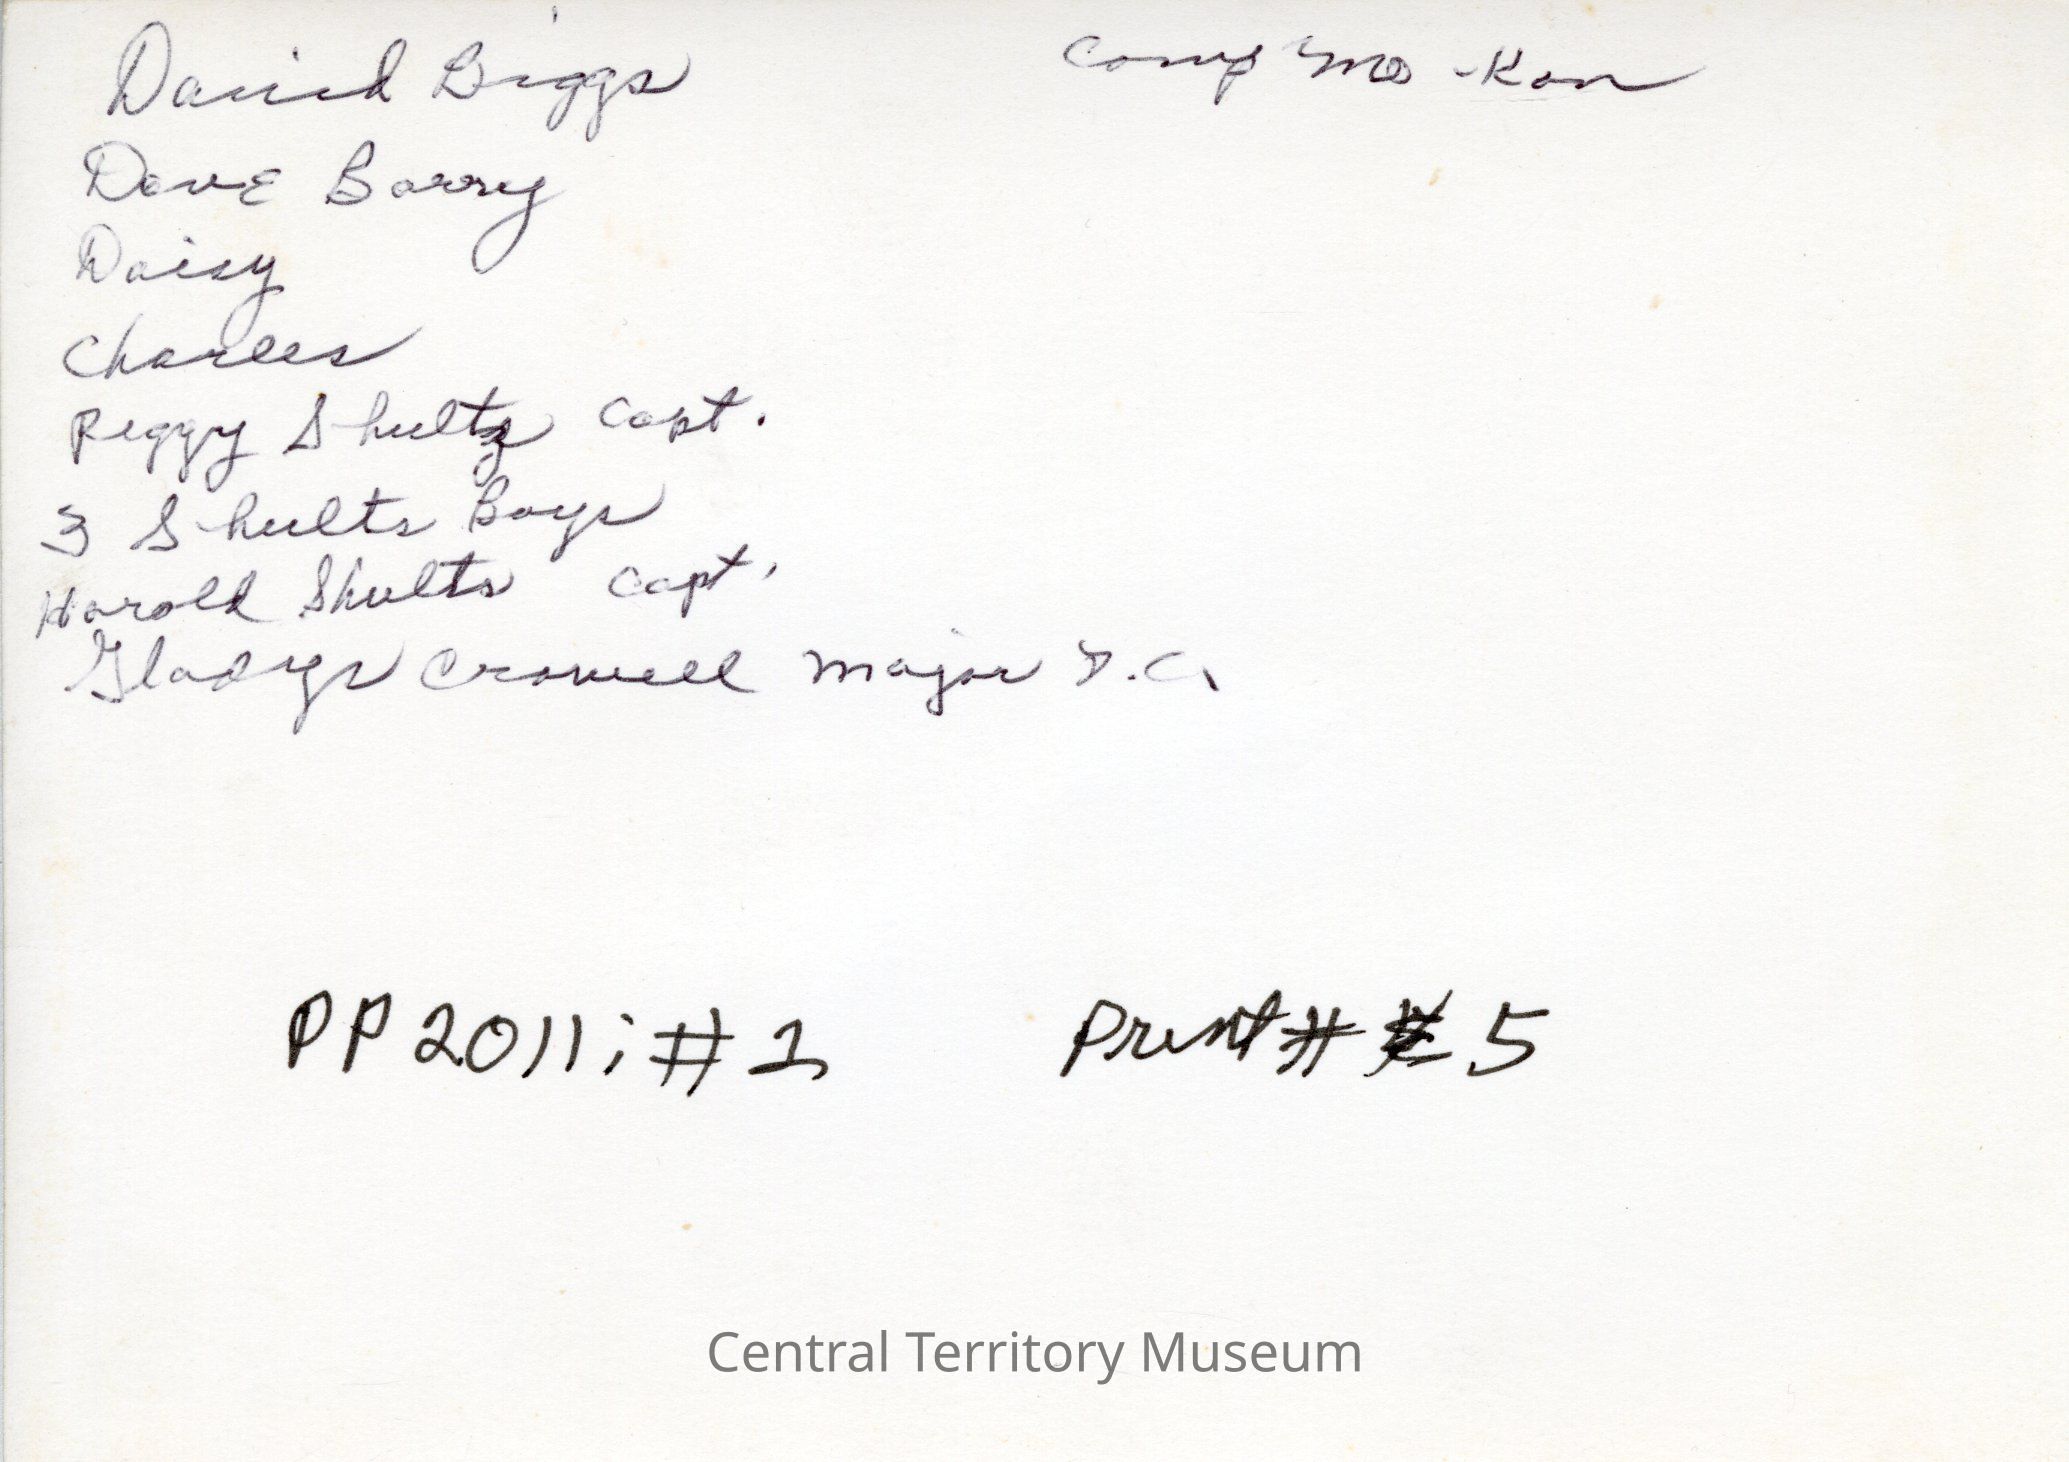 David Biggs
Camp Mo-Kan
Dave Barry
Daisy
Charles
Peggy Shultz Capt.
3 Shults Boys
Harold Shults Capt.
Gladys Crowell Major D.C.
PP2011; #1
Print # 5
Central Territory Museum